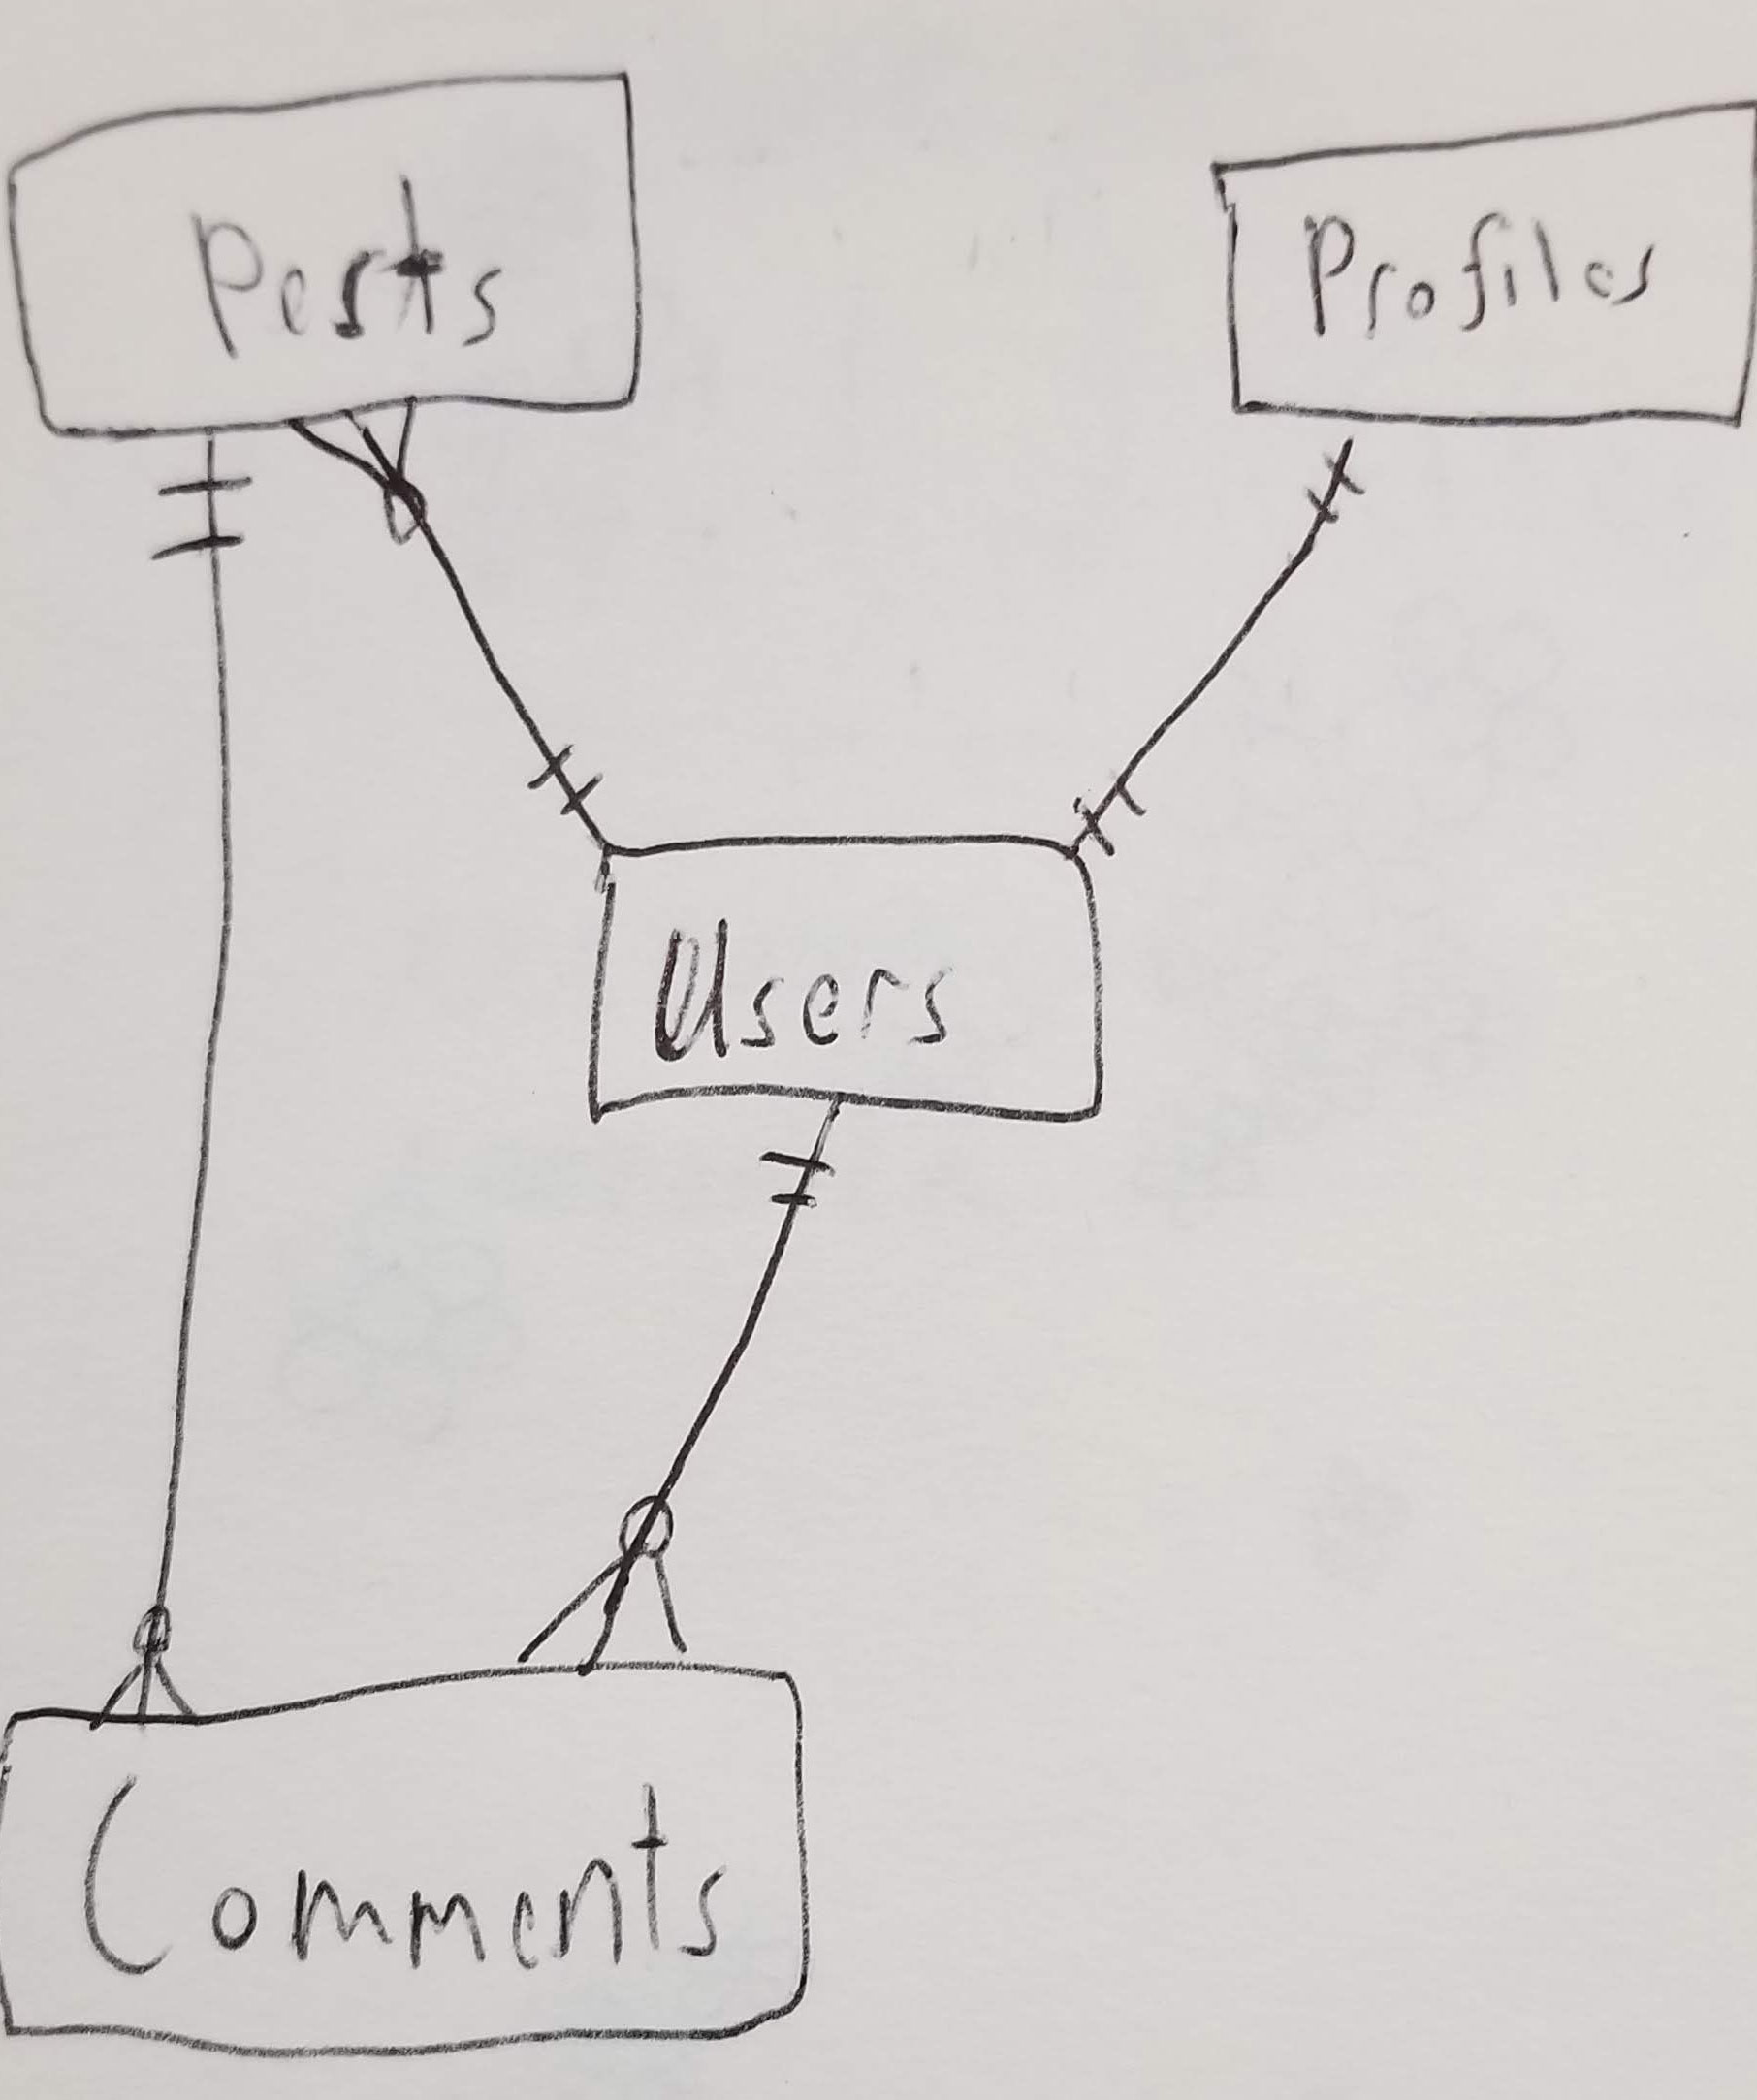 Posts
Profiles
Users
Comments